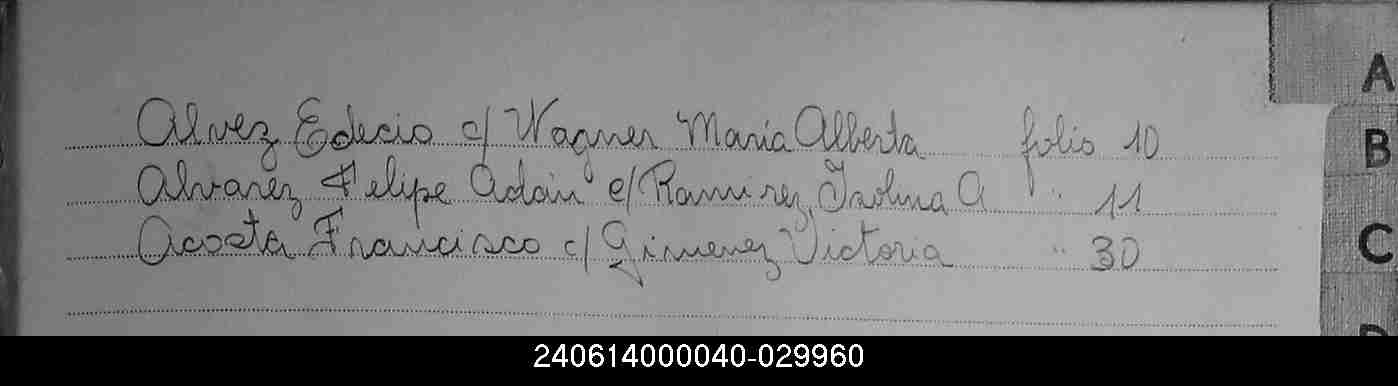 Alvez Edecio c/ Wagner Maria Alberta folio 10
Alvarez Felipe Adán c/ Ramirez, Isolina A " 11
Acosta Francisco c/ Gimenez Victoria " 30
A
B
C
D
240614000040-029960